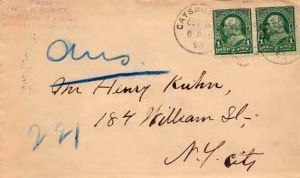 Ans.
Mr Henry Kuhn,
184 William St.,
N.Y. City
221